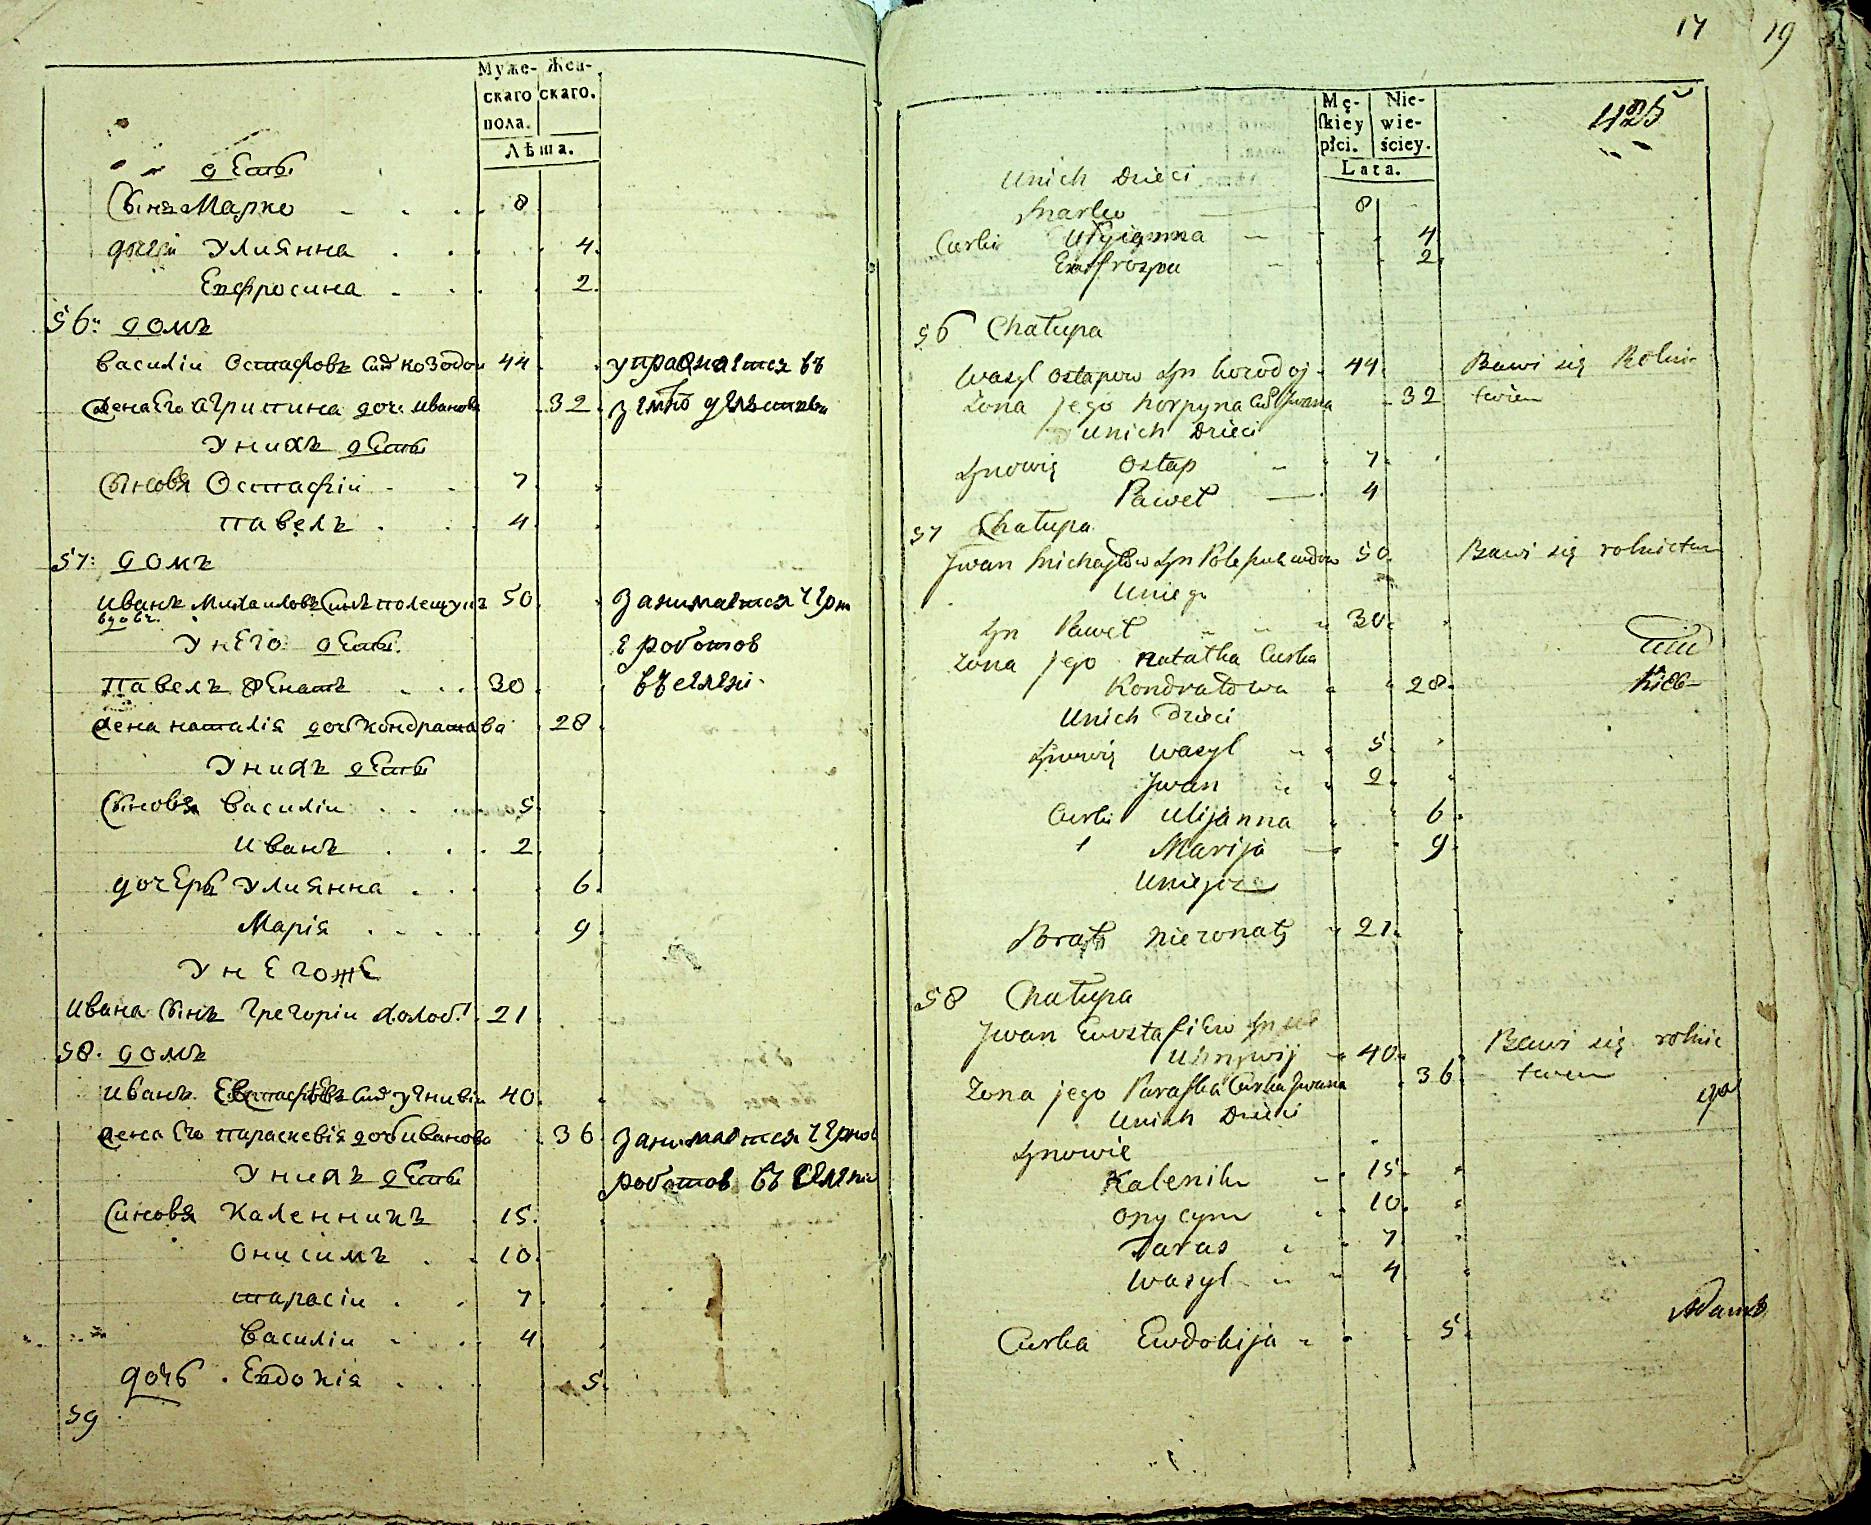 Муже- Жен-
скаго скаго.
пола.
Лѣта.
дѣти
Сынъ Марко 8
дочери Улиянна 4
Евфросина 2
56: домъ
Василіи Остаповъ Сынъ козодои 44 упражнаетися въ
жена Его Агрипина доч: иванова 32
Унихъ дѣти
Сыновя Остафіи 7
павелъ 4
57: домъ
иванъ Михаиловъ Сынъ полещукъ 50 Занимается Черн
вдовъ.
УнЕго дѣти. работов
павелъ женатъ 30 въселени
жена наталія дочь кондратова 28
Унихъ дѣти
Сыновя Василіи 5
иванъ 2
дочЕры Улиянна 6
Марія 9
УнЕгожЕ
ивана Сынъ Григоріи Холос: 21
58. домъ
иванъ Евстафіевъ Сынъ 40
жена Его параскевія дочь иванова 36 Занимается Черною
Унихъ дѣти работов въ Селени
Синовя Каленникъ 15
Онисимъ 10
тарасіи 7
Василіи 4
дочь Евдокія 5
59
17 19
Mę- Nie-
skiey wie-
płci. ściey.
Lata.
425
Unich Dzieci
Marko 8
Curki Ulyianna 4
Eutfrozyna 2
56 Chałupa
Wasyl Ostapow Syn kozodoj 44 Bawi się Rolnic
Zona jego horpyna Cur Jwana 32 twem
Unich Dzieci
Synowię Ostap 7
Paweł 4
57 Chałupa
Jwan Michajłów Syn Poleszuk wdow 50 Bawi się rolnictwe
Uniego
Syn Paweł 30
Zona jego Natalka Curka
Kondratowa 28
Unich Dzieci
Synowię Wasyl 5
Jwan 2
Curki Ulijanna 6
Marija 9
Uniegoz
Brat niezonaty 21
58 Chałupa
Jwan Ewstafiew Syn
40 Bawi się rolnic
Zona jego Paraska Curka Jwana 36 twem
Unich Dzieci
Synowie
Kalenik 15
Onycym 10
Taras 7
Wasyl 4
Curka Ewdokija 5